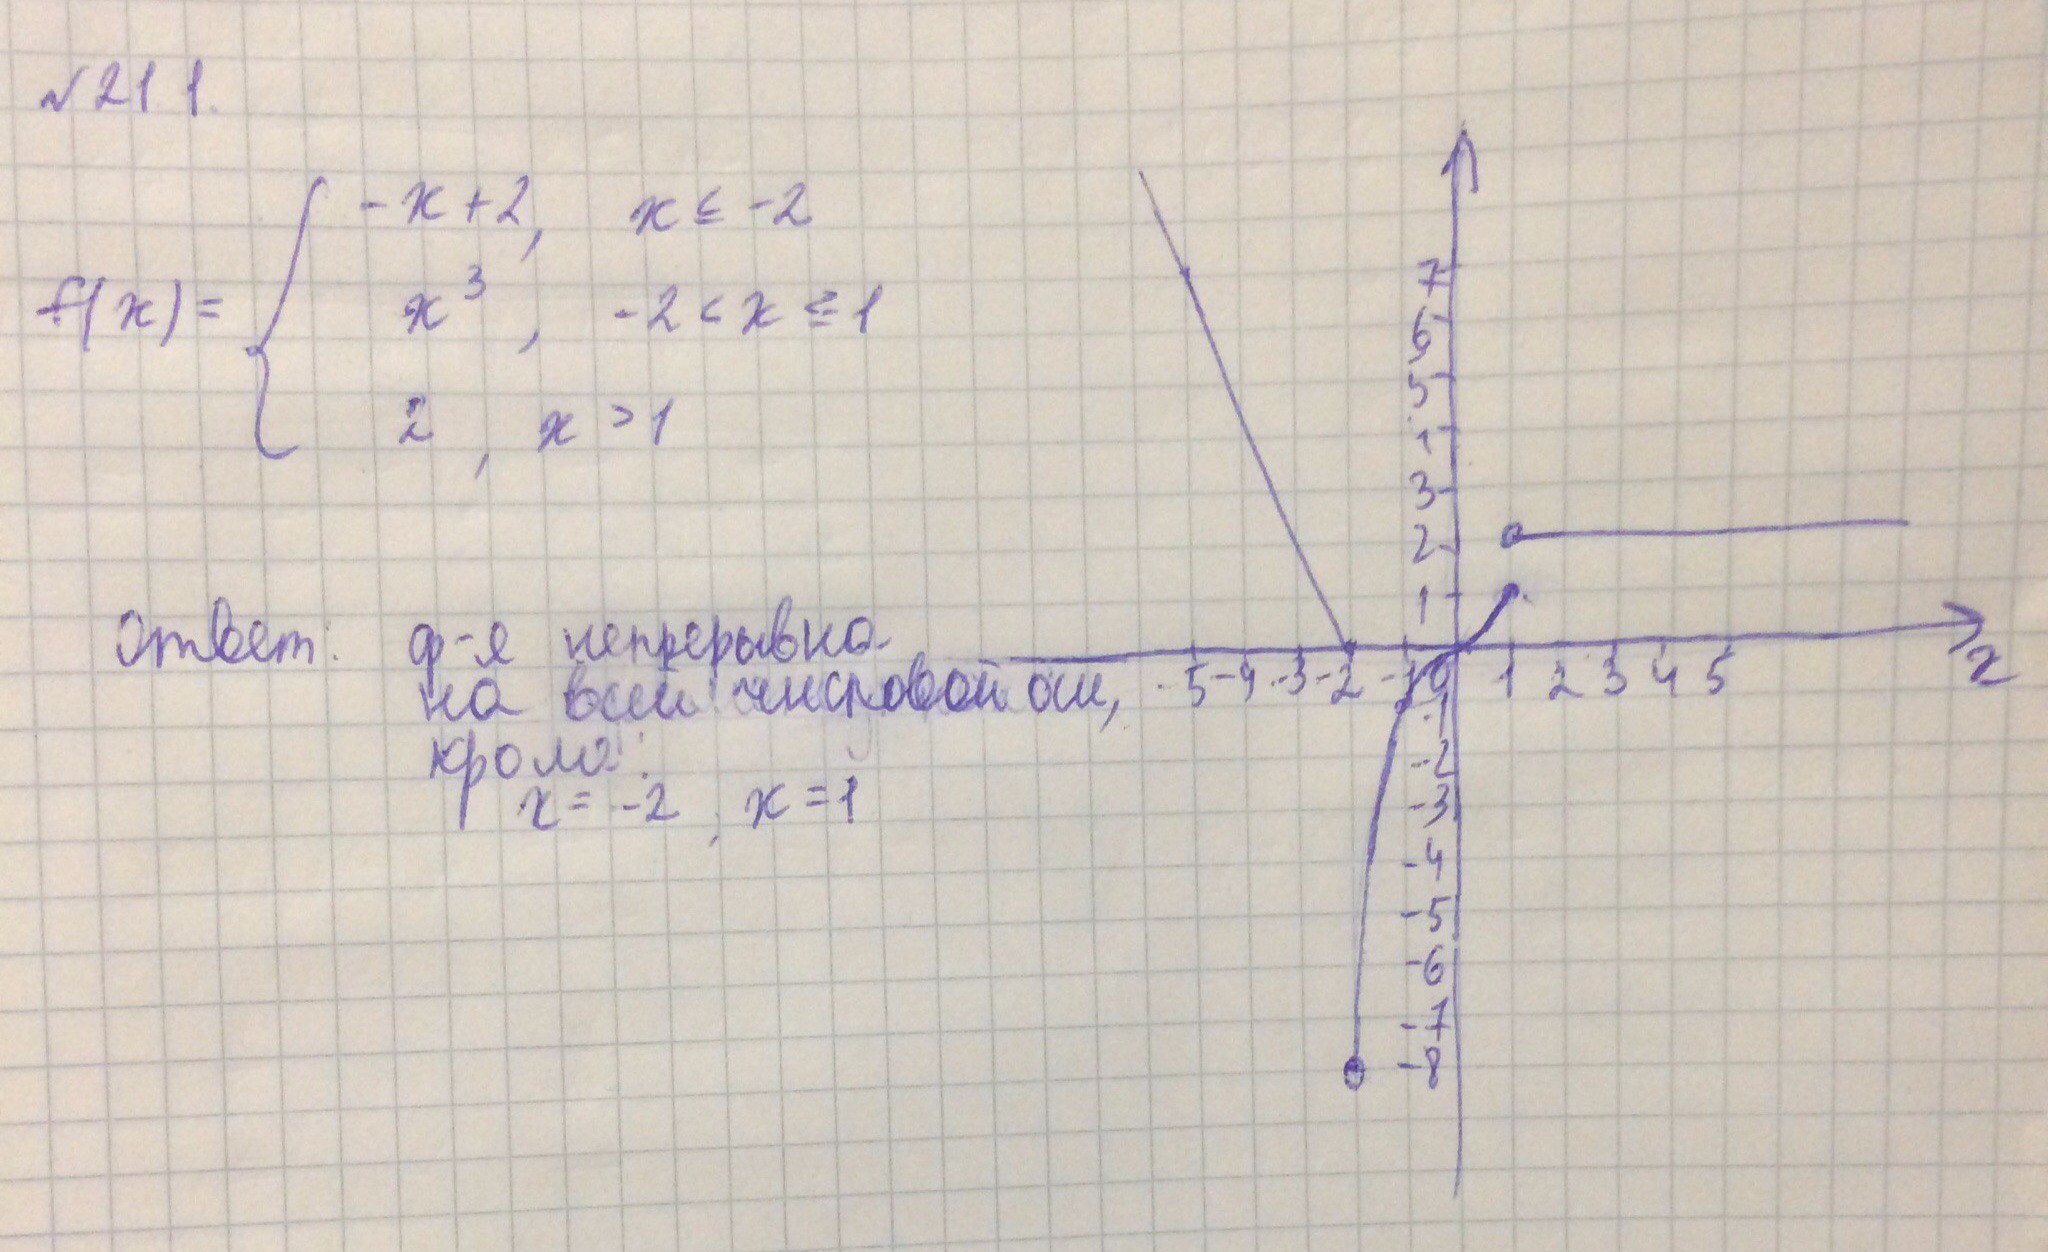 № 211.
f(x) = { -x+2, x ≤ -2
x³, -2 < x ≤ 1
2, x > 1
7
6
5
1
3
2
1
Ответ: ф-я непрерывна
на всей числовой оси,
кроме:
x = -2, x = 1
-5 -4 -3 -2 -1 0 1 2 3 4 5 x
-1
-2
-3
-4
-5
-6
-7
-8